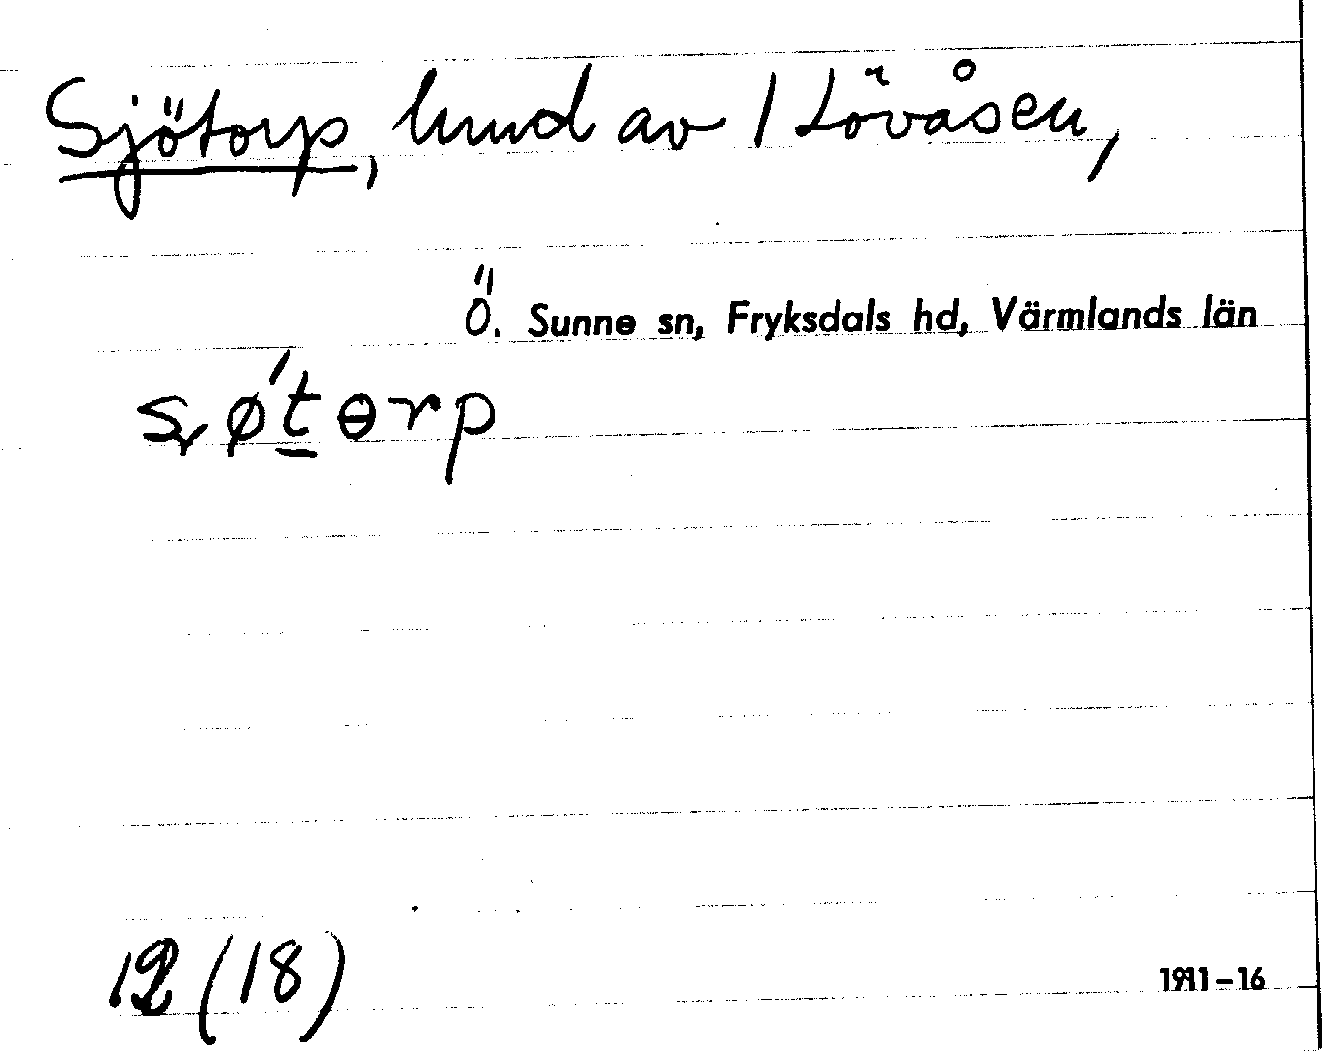 Sjötorp, lund av 1 Lövåsen,
Ö. Sunne sn, Fryksdals hd, Värmlands län
12 (18)
1911-16